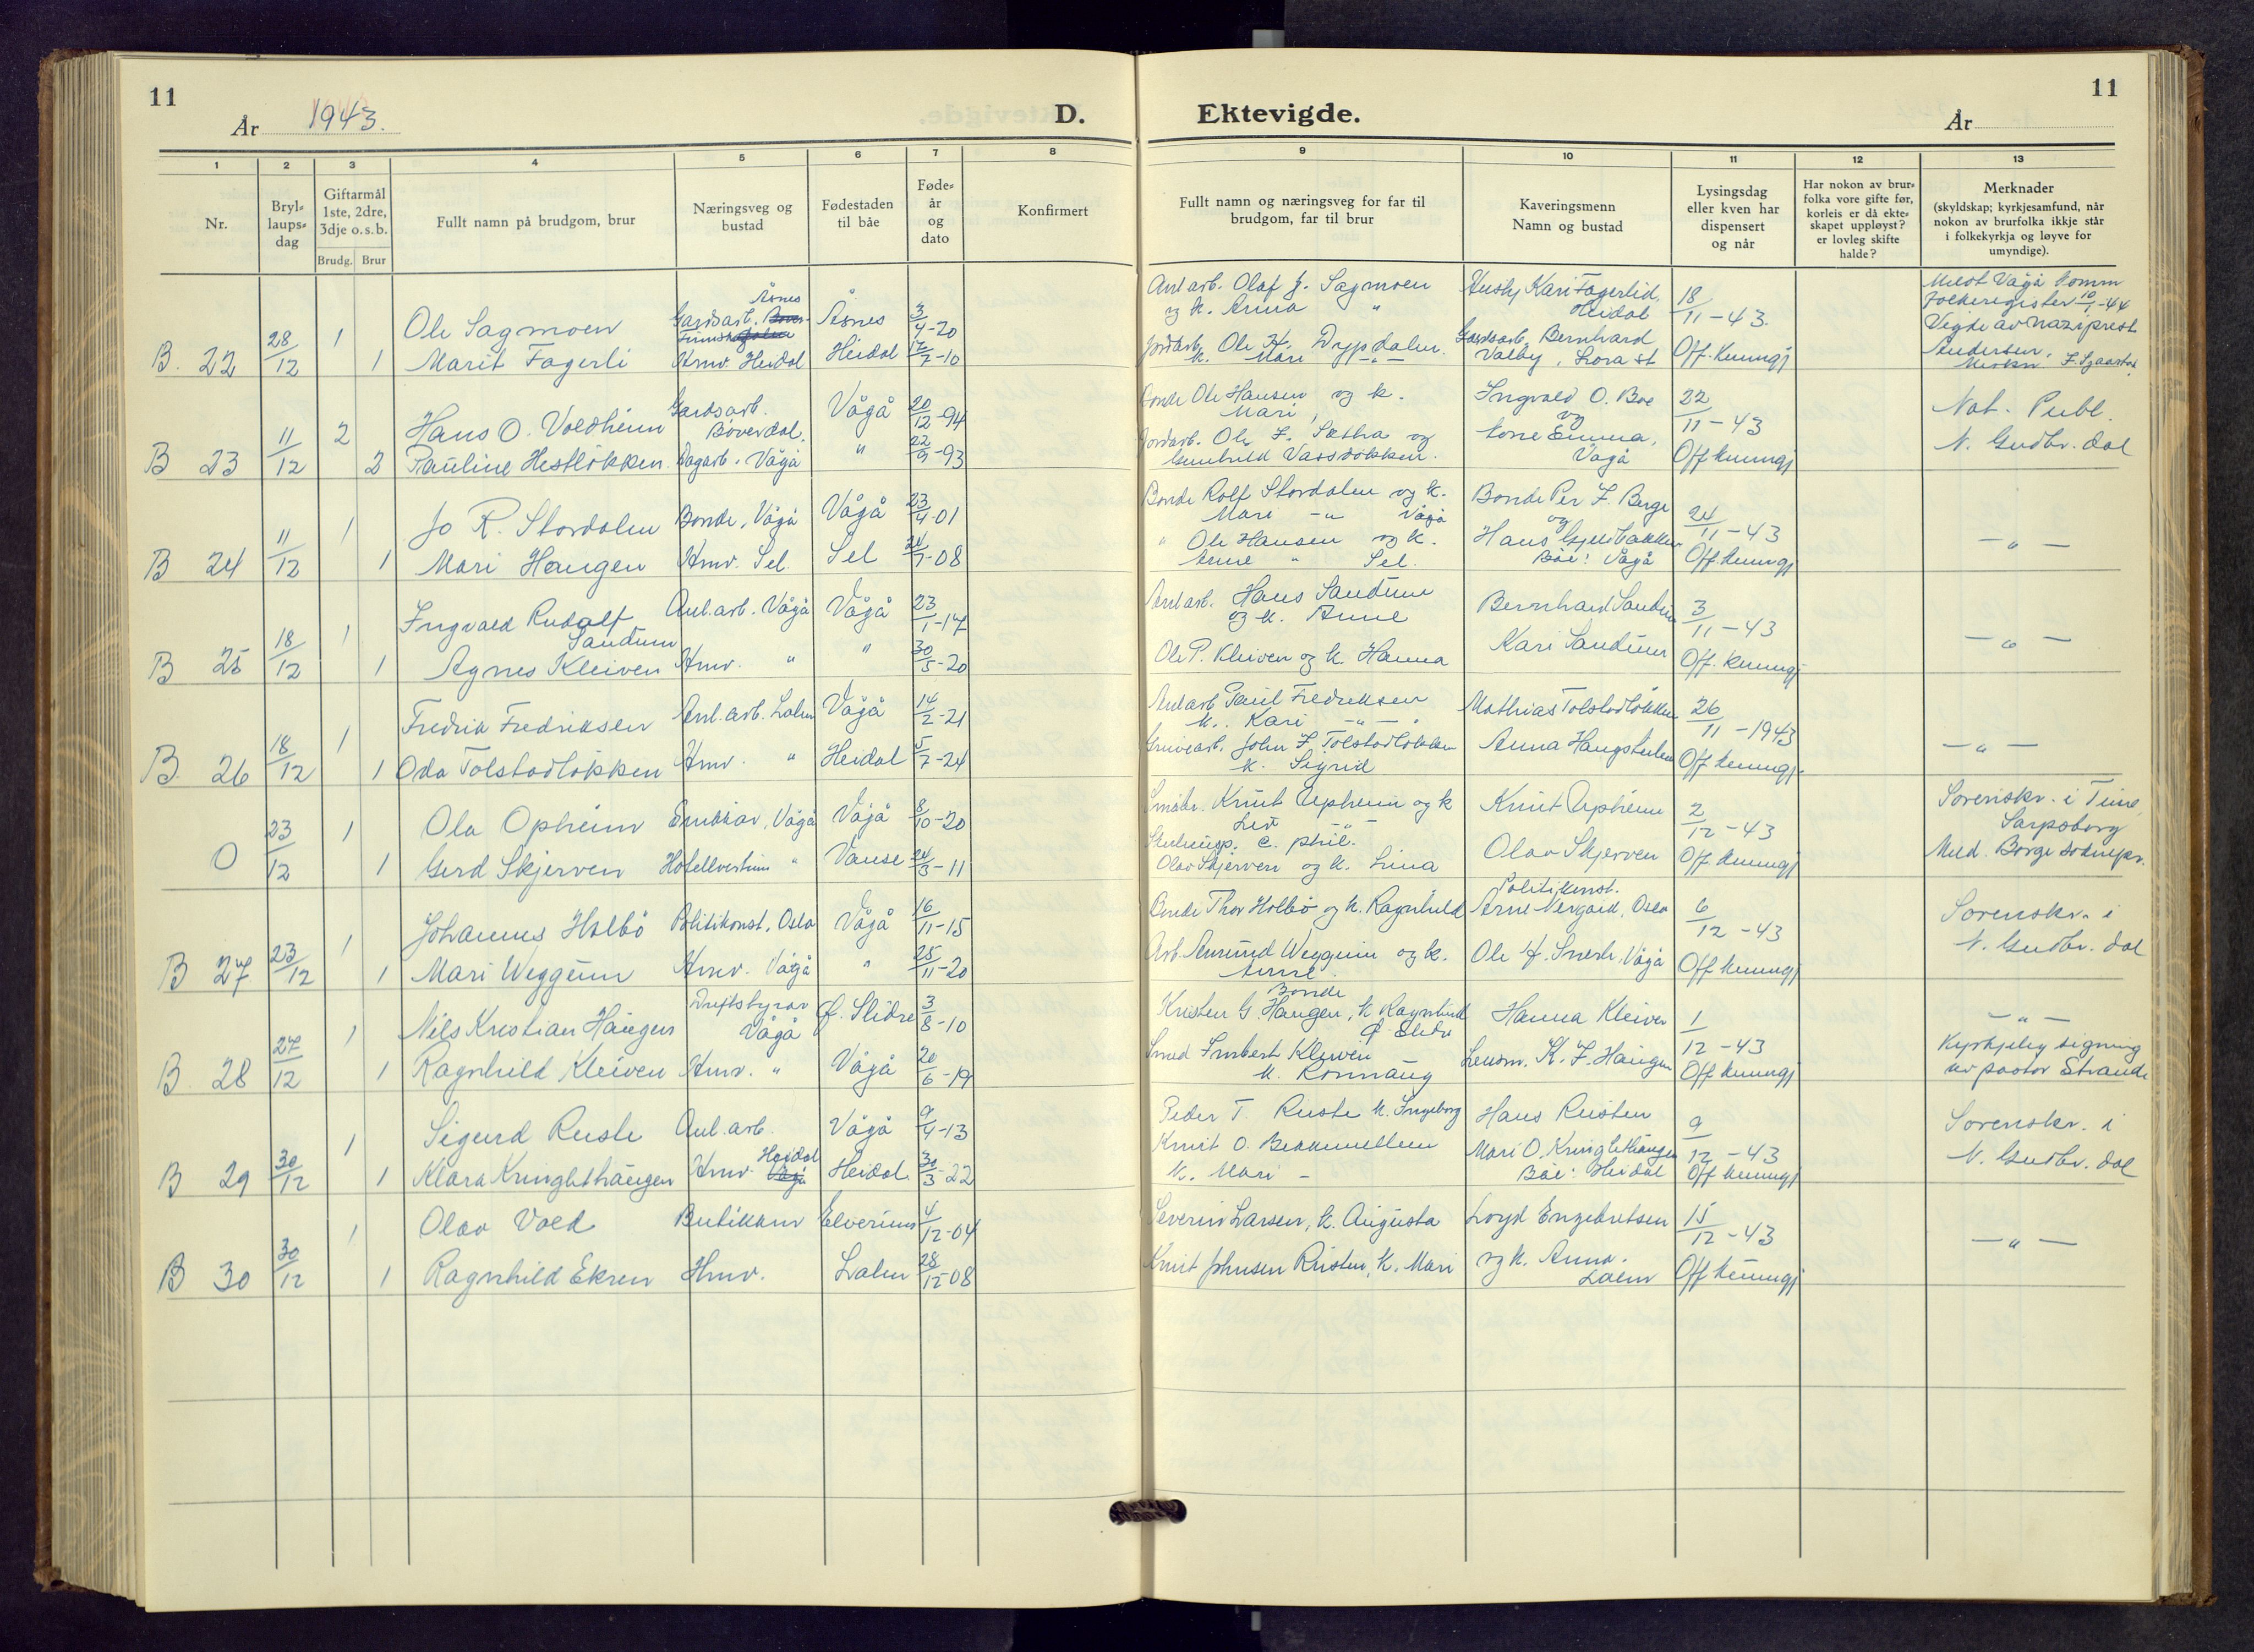 11
År 1943.
D.
1 2 3 4 5 6 7 8
Nr.
Bryllaupsdag
Giftarmål 1ste, 2dre, 3dje o.s.b.
Brudg. Brur
Fullt namn på brudgom, brur
Næringsveg og bustad
Fødestaden til båe
Fødeår og dato
Konfirmert
B. 22 28/12 1 Ole Sagmoen Gardsarb. Åsnes Åsnes 3/4-20
1 Marit Fagerli Hmv. Heidal Heidal 17/7-10
B 23 11/12 2 Hans O. Voldheim Gardsarb. Bøverdal. Vågå 20/12-94
2 Pauline Hestløkken. Dagarb. Vågå " 22/9-93
B 24 11/12 1 Jo R. Stordalen Bonde, Vågå Vågå 23/4-01
1 Mari Haugen Hmv. Sel. Sel 24/7-08
B 25 18/12 1 Ingvald Rudolf Sandum Anl.arb. Vågå Vågå 23/1-17
1 Agnes Kleiven Hmv. " " 30/5-20
B. 26 18/12 1 Fredrik Fredriksen Anl.arb. Lalm Vågå 14/2-21
1 Oda Tolstadløkken Hmv. " Heidal 5/7-24
O 23/12 1 Ola Opheim Småkar, Vågå Vågå 8/10-20
1 Gerd Skjerven Hotellvertinne " Vanse 24/3-11
B 27 23/12 1 Johannes Holbö Politikonst, Oslo Vågå 16/11-15
1 Mari Weggum Hmv. Vågå " 25/11-20
B. 28 27/12 1 Nils Kristian Haugen Driftsbyrar Vågå Ø. Slidre 3/8-10
1 Ragnhild Kleiven Hmv. " Vågå 20/6-19
B 29 30/12 1 Sigurd Rusle Anl.arb. Vågå 9/4-13
1 Klara Kringlethaugen Hmv. Heidal Heidal. 30/3-22
B 30 30/12 1 Olav Vold Butikken Elverum 4/12-04
1 Ragnhild Ekren Hmv. Lalm 28/12-08
Ektevigde.
11
År
9 10 11 12 13
Fullt namn og næringsveg for far til brudgom, far til brur
Kaveringsmenn Namn og bustad
Lysingsdag eller kven har dispensert og når
Har nokon av brurfolka vore gifte før, korleis er då ekteskapet uppløyst? er lovleg skifte halde?
Merknader (skyldskap; kyrkjesamfund, når nokon av brurfolka ikkje står i folkekyrkja og løyve for umyndige).
Anl arb. Olaf J. Sagmoen og k. Anna " Kari Fagerlid. Heidal 18/11-43. Meldt Vågå komm folkeregister 10/1-44
Ole H. Drypdalen. k. Mari -"- Gardsarb. Bernhard Valby, Lora st Off. kunngj Vigde av naziprest Andersen.
Bonde Ole Hansen og k. Mari Ingvald O. Boe og 22/11-43 Not. Publ.
Jordarb. Ole F. Sætha og Gunhild Emma, Vågå Off kunngj N. Gudbr. dal
Bonde Rolf Stordalen og k. Mari -"- Vågå Bonde Per F. Berge og 24/11-43
" Ole Hansen og k. Anne " Sel. Hans Båe: Vågå Off. kunngj -"-
Anl arb. Hans Sandum og k. Anne Bernhard Sandum 3/11-43
Ole P. Kleiven og k. Hanna Kari Sandum Off. kunngj -"-
Anl arb Paul Fredriksen k. Kari -"- Mathias Tolstadløkken 26/11-1943
Gruvearb. John F. Tolstadløkken k. Sigrid Anna Haugstulen Off kunngj. -"-
Småbr. Knut Upheim og k Liv -"- Knut Upheim 2/12-43 Sorenskr. i Tune, Sarpsborg
c. phil. Olav Skjerven og k. Lina Olav Skjerven Off. kunngj Meld. Borge soknepr.
Bonde Thor Holbö og k. Ragnhild Politikonst. Arne Nergard, Oslo 6/12-43 Sorenskr. i
Arb. Amund Weggum og k. Anne Ole H. Snerle, Vågå Off kunngj N. Gudbr. dal
Bonde Kristen G. Haugen, k Ragnhild Ø. Slidre Hanna Kleiven 1/12-43 -"-
Smed Imbert Kleiven k. Rönnaug Lensm. K. F. Haugen Off kunngj Kyrkjeleg signing av pastor Strande
Peder T. Rusle k. Ingeborg Hans Rusten 9/12-43 Sorenskr. i
Knut O. Bekkemellem k. Mari - Mari O. Kringlethaugen Båe: Heidal Off kunngj N. Gudbr. dal
Severin Larsen, k. Augusta Loyd Engebretsen 15/12-43
Knut Johnsen Rusten, k. Mari og k. Anna. Lalm Off kunngj -"-